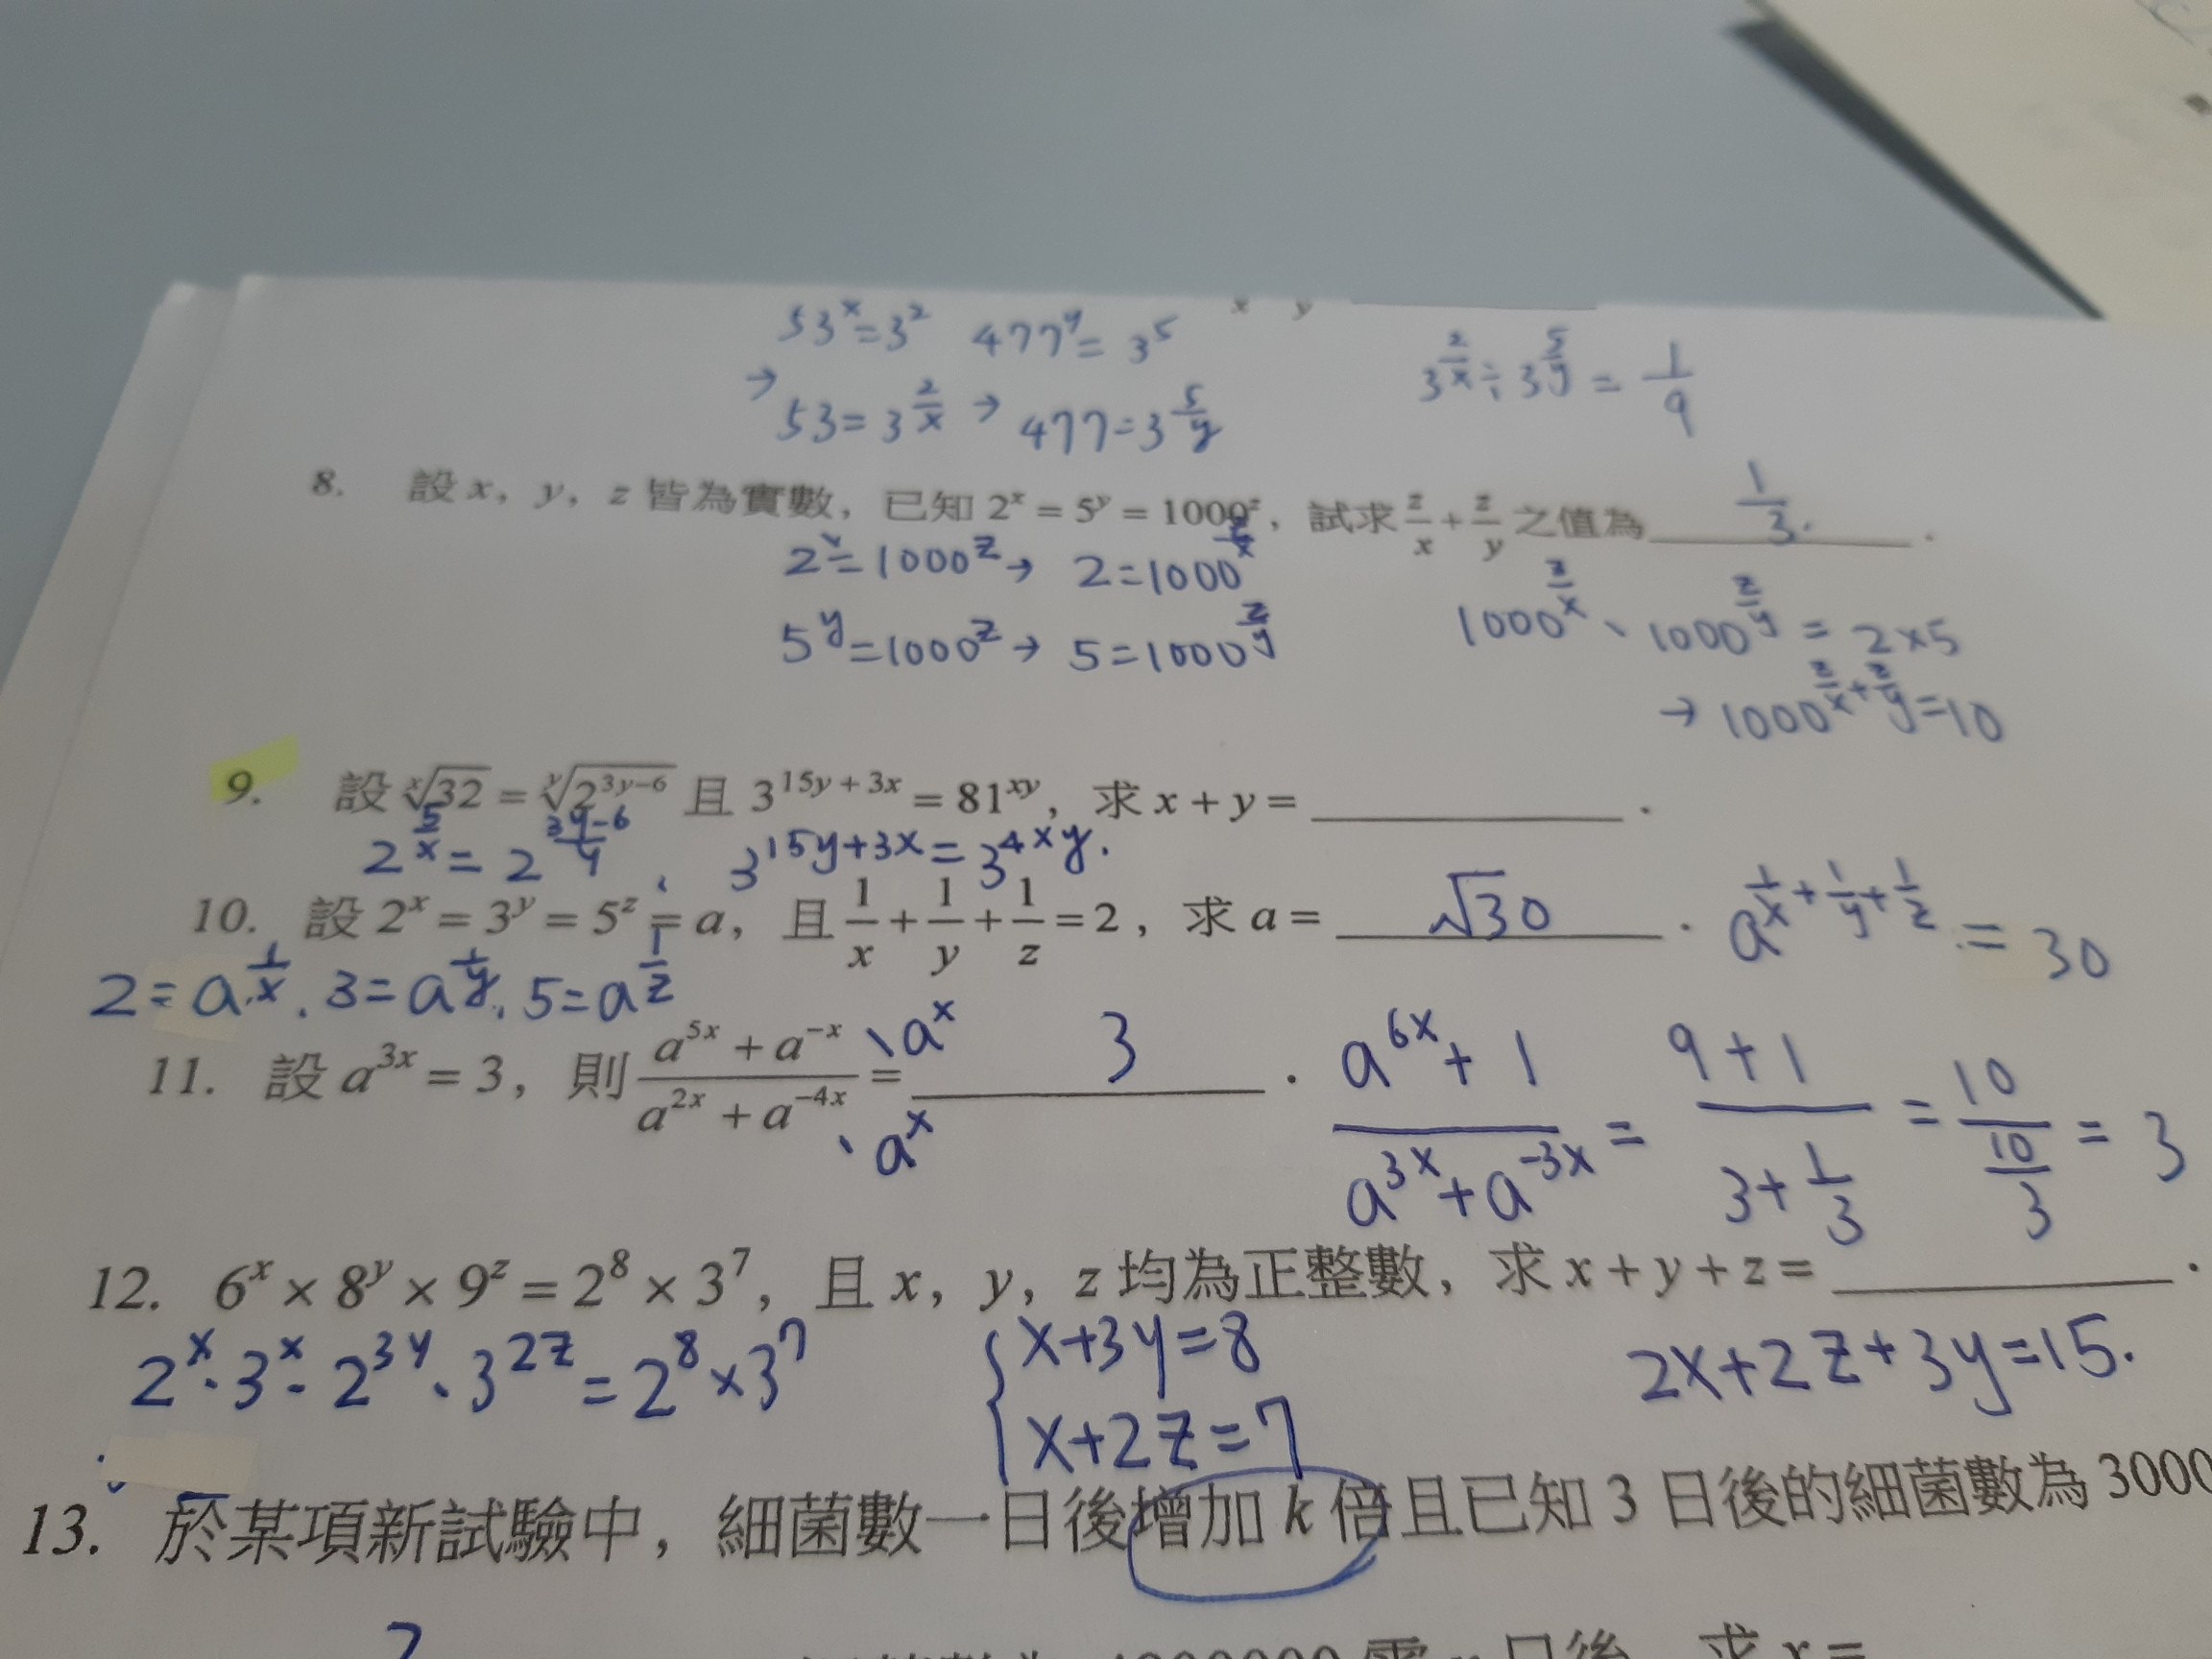 x y
53^x=3^2 477^y=3^5 3^{2/x}÷3^{5/y}=1/9
→53=3^{2/x} →477=3^{5/y}
8. 設 x，y，z 皆為實數，已知 2^x = 5^y = 1000^z，試求 z/x + z/y 之值為 1/3.
2^x=1000^z→ 2=1000^{z/x}
1000^{z/x}、1000^{z/y}=2×5
5^y=1000^z→ 5=1000^{z/y}
→1000^{z/x+z/y}=10
9. 設 ˣ√32 = ʸ√2^{3y−6} 且 3^{15y+3x} = 81^{xy}，求 x + y =
2^{5/x}=2^{(3y-6)/y}、3^{15y+3x}=3^{4xy}.
10. 設 2^x = 3^y = 5^z = a，且 1/x + 1/y + 1/z = 2，求 a = √30 . a^{1/x+1/y+1/z}=30
2=a^{1/x}.3=a^{1/y}.5=a^{1/z}
11. 設 a^{3x} = 3，則 (a^{5x} + a^{−x})/(a^{2x} + a^{−4x}) = 3 .
、a^x
、a^x
(a^{6x}+1)/(a^{3x}+a^{-3x})=(9+1)/(3+1/3)=10/(10/3)=3
12. 6^x × 8^y × 9^z = 2^8 × 3^7，且 x，y，z 均為正整數，求 x + y + z = .
2^x·3^x·2^{3y}、3^{2z}=2^8×3^7 {x+3y=8 2x+2z+3y=15.
x+2z=7
13. 於某項新試驗中，細菌數一日後增加 k 倍且已知 3 日後的細菌數為 3000
日後，求 x =